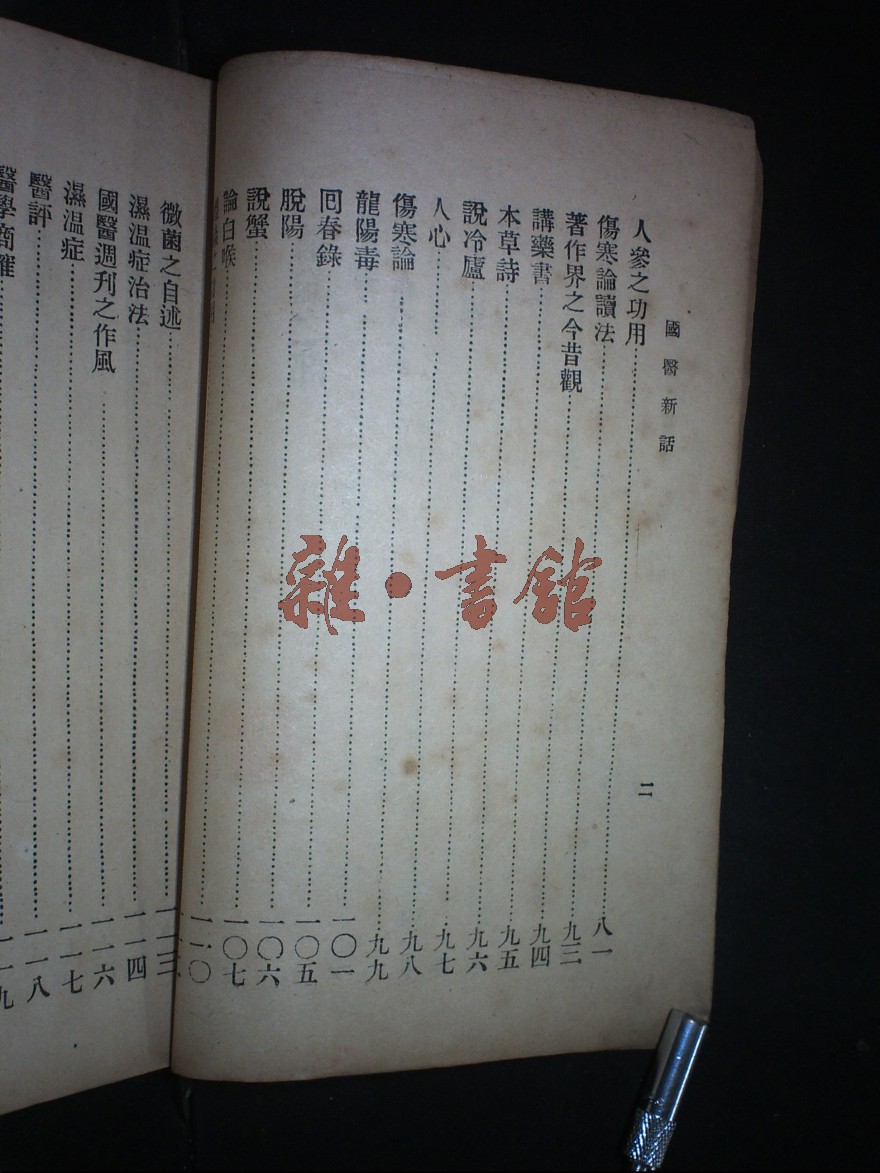 國醫新話
二
人參之功用……八一
傷寒論讀法……九三
著作界之今昔觀……九四
講藥書……九五
本草詩……九六
說冷廬……九七
人心……九八
傷寒論……九九
龍陽毒……一〇一
回春錄……一〇五
脫陽……一〇六
說蟹……一〇七
論白喉……一一〇
微菌之自述……一一三
濕温症治法……一一四
國醫週刊之作風……一一六
濕温症……一一七
醫評……一一八
醫學商榷……一一九
雜·書館